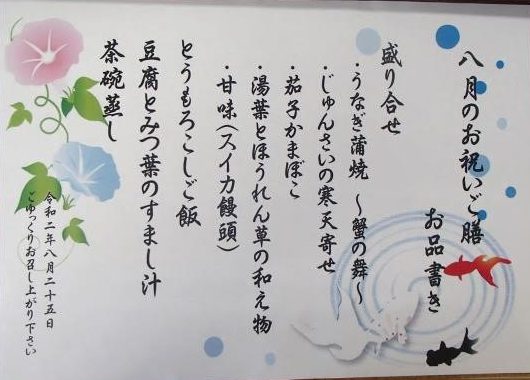 八月のお祝いご膳
お品書き
盛り合せ
・うなぎ蒲焼 〜蟹の舞〜
・じゅんさいの寒天寄せ
・茄子かまぼこ
・湯葉とほうれん草の和え物
・甘味(スイカ饅頭)
とうもろこしご飯
豆腐とみつ葉のすまし汁
茶碗蒸し
令和二年八月二十五日
ごゆっくりお召し上がり下さい